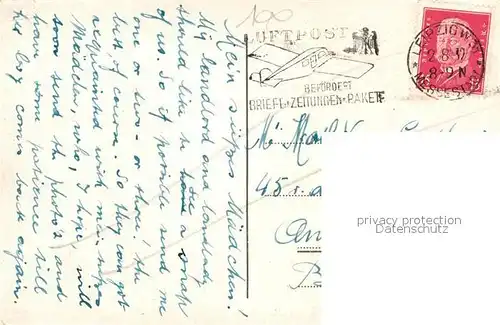 100
LUFTPOST
BEFÖRDERT
BRIEFE-ZEITUNGEN-PAKETE
LEIPZIG W 31
2.8.
8-9 N
MESSESTADT
Mein süsses Mädchen!
My landlord and landlady
should like to see a snap
of us. So if possible send me
one or two - or three! the
best of course. So they can get
acquainted with mein süsses
Mädchen who, I hope, will
soon send the photos, and
have some patience till
her boy comes back again.
45 r.
privacy protection
www.ansichtskarten-center.de